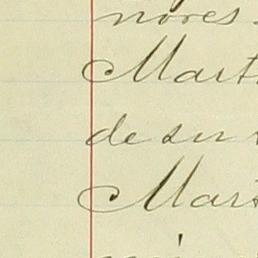 nores
Mart
de su
Mart